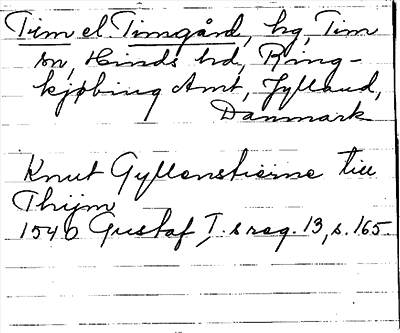 Tim el. Timgård, hg, Tim
sn, Hinds hd, Ring-
kjøbing Amt, Jylland,
Danmark
Knut Gyllenstierne till
Thijm
1540 Gustaf I.s reg. 13, s. 165.